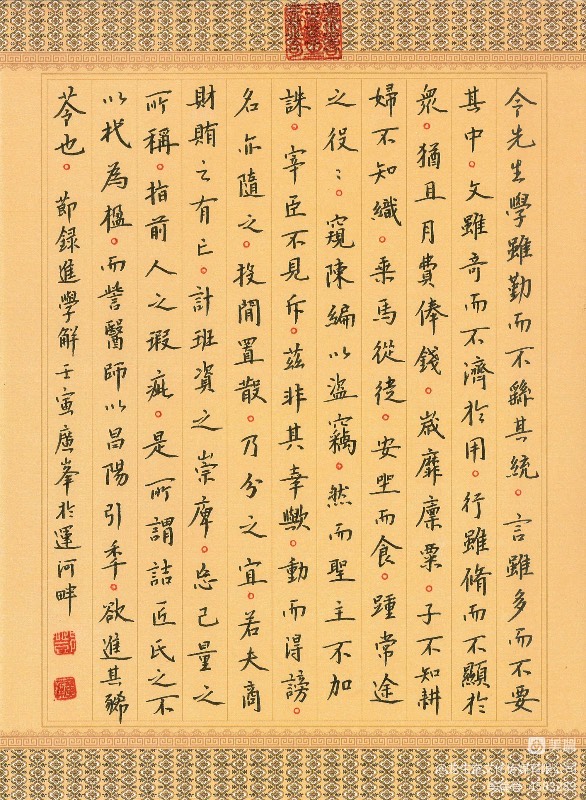 今先生學雖勤而不繇其統。言雖多而不要
其中。文雖奇而不濟於用。行雖脩而不顯於
眾。猶且月費俸錢。歲靡廩粟。子不知耕
婦不知織。乘馬從徒。安坐而食。踵常途
之役〻。窺陳編以盜竊。然而聖主不加
誅。宰臣不見斥。茲非其幸歟。動而得謗。
名亦隨之。投閒置散。乃分之宜。若夫商
財賄之有亡。計班資之崇庳。忘己量之
所稱。指前人之瑕疵。是所謂詰匠氏之不
以杙為楹。而訾醫師以昌陽引年。欲進其豨
苓也。節録進學解壬寅廣峯於運河畔
美篇